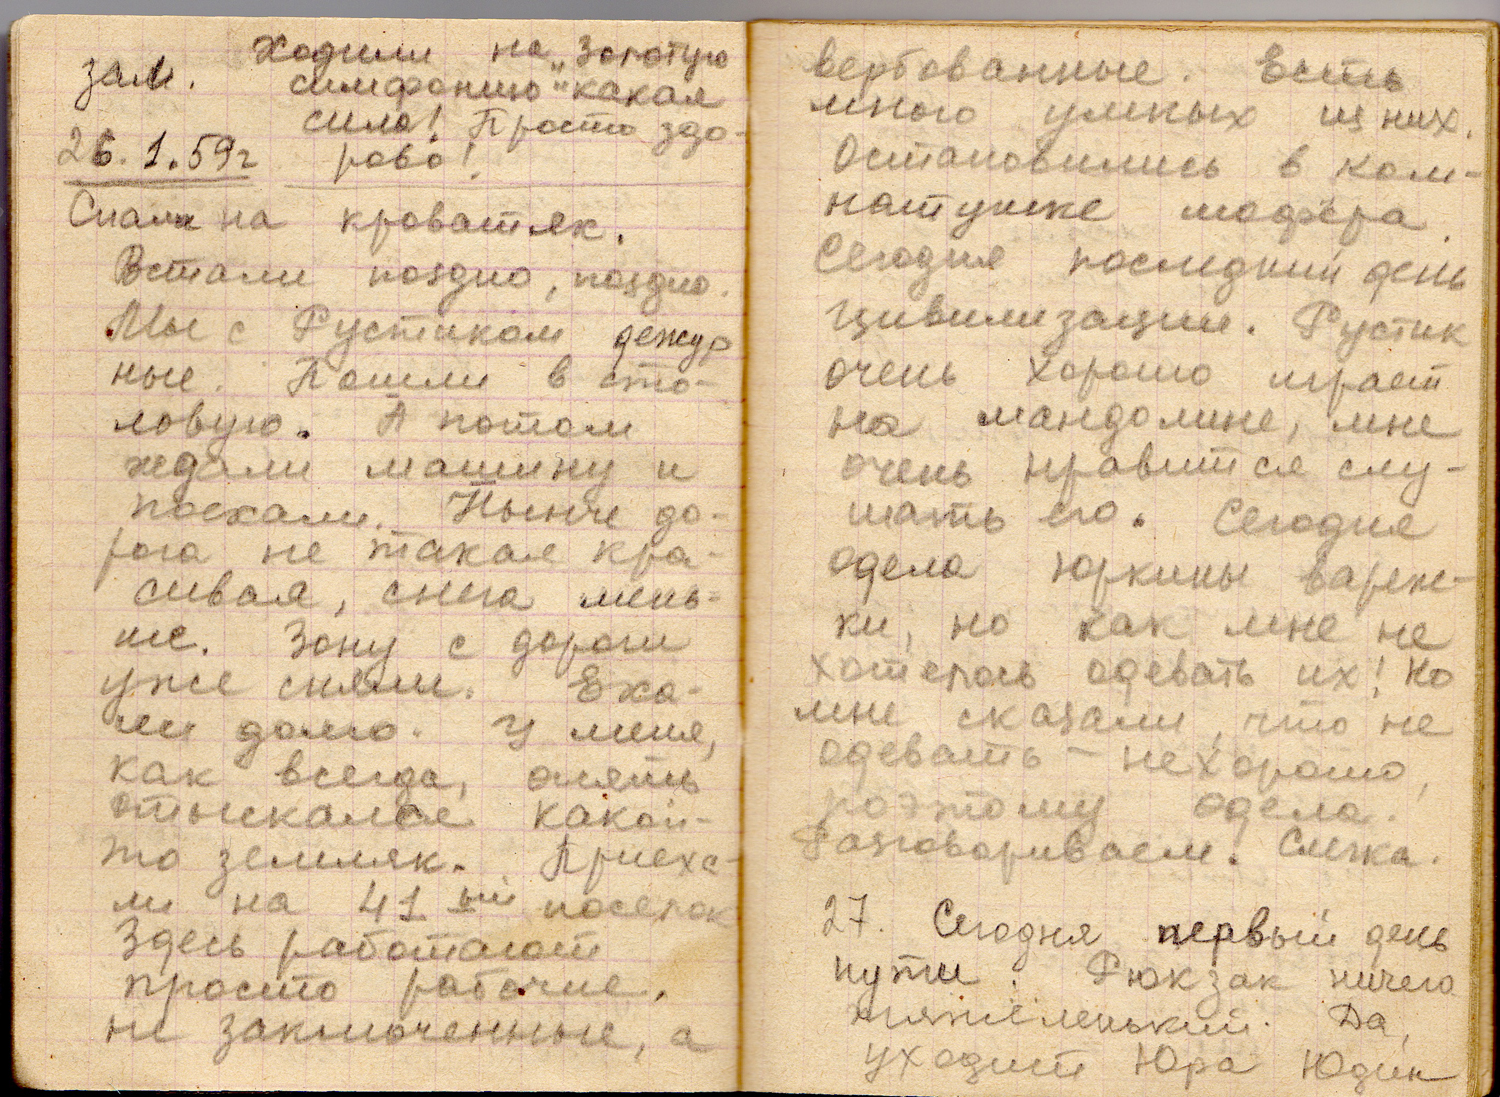 зам. Ходили на „Золотую
симфонию" какая
сила! Просто здо-
26.1.59г рово!
Спали на кроватях.
Встали поздно, поздно.
Мы с Рустиком дежур
ные. Пошли в сто-
ловую. А потом
ждали машину и
поехали. Нынче до-
рога не такая кра-
сивая, снега мень-
ше. Зону с дороги
уже сняли. Еха-
ли долго. У меня,
как всегда, опять
отыскался какой-
то земляк. Приеха-
ли на 41 ый поселок
Здесь работают
просто рабочие,
не заключенные, а
вербованные. Есть
много умных из них.
Остановились в ком-
натушке шофера.
Сегодня последний день
цивилизации. Рустик
очень хорошо играет
на мандолине, мне
очень нравится слу-
шать его. Сегодня
одела Юркины вареж-
ки, но как мне не
хотелось одевать их! Но
мне сказали, что не
одевать - нехорошо,
поэтому одела.
Разговариваем. Слегка.
27. Сегодня первый день
пути. Рюкзак ничего
тяжеленький. Да,
уходит Юра Юдин